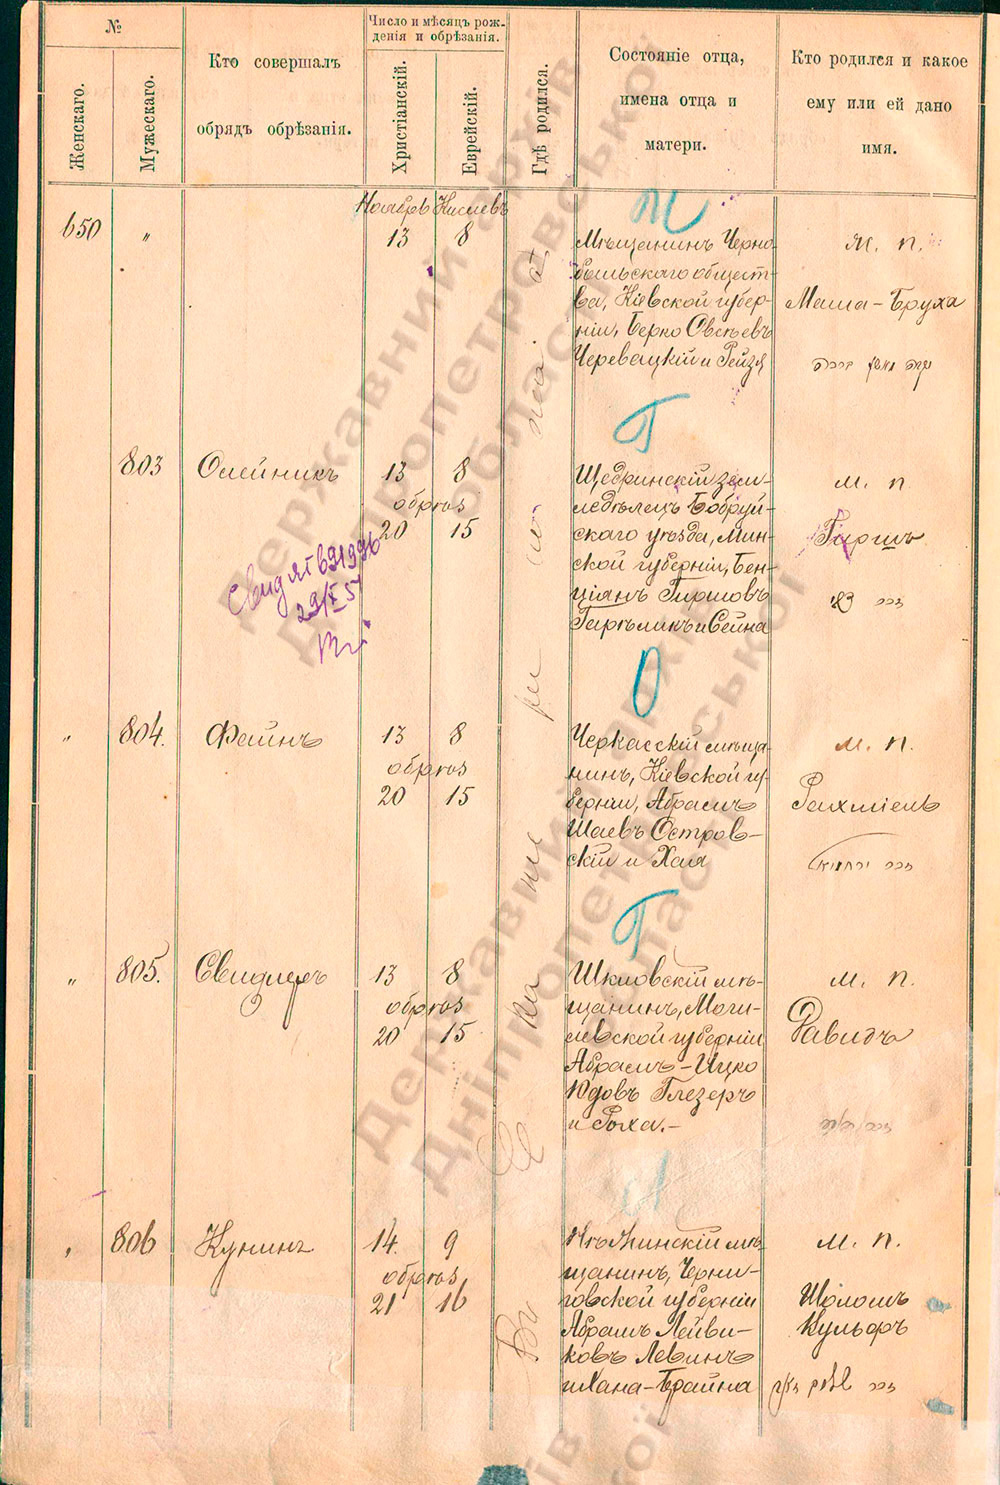 №
Женскаго.
Мужескаго.
Кто совершалъ
обрядъ обрѣзанія.
Число и мѣсяцъ рож-
денія и обрѣзанія.
Христіанскій.
Еврейскій.
Гдѣ родился.
Состояніе отца,
имена отца и
матери.
Кто родился и какое
ему или ей дано
имя.
Ноябрь Кислевъ
650 " 13 8
Мѣщанинъ Черно-
быльскаго общест-
ва, Кіевской губер-
ніи, Берко Овсѣевъ
Черевацкій и Рейзя
м. п.
Маша-Бруха
Г
803 Олейникъ 13 8
обрѣз
20 15
29/X 57
Щедринскій зем-
ледѣлецъ Бобруй-
скаго уѣзда, Мин-
ской губерніи, Бен-
ціянъ Гиршовъ
Гарѣликъ и Сейна
м. п.
Гиршъ
О
" 804. Фаинъ 13 8
обрѣз
20 15
Черкасскій мѣща-
нинъ, Кіевской гу-
берніи, Абрамъ
Шаевъ Островс-
скій и Хая
м. п.
Рахміель
Г
" 805. Свидлеръ 13 8
обрѣз
20 15
Шкловскій мѣ-
щанинъ, Моги-
левской губерніи
Абрамъ-Ицко
Юдовъ Глезеръ
и Роха.-
м. п.
Давидъ
" 806 Кунинъ 14. 9
обрѣз
21 16
Нѣжинскій мѣ-
щанинъ, Черни-
говской губерніи
Абрамъ Лейви-
ковъ Левинъ
и Хана-Брайна
м. п.
Шоломъ
Вульфъ
Державний архів
Дніпропетровської
області